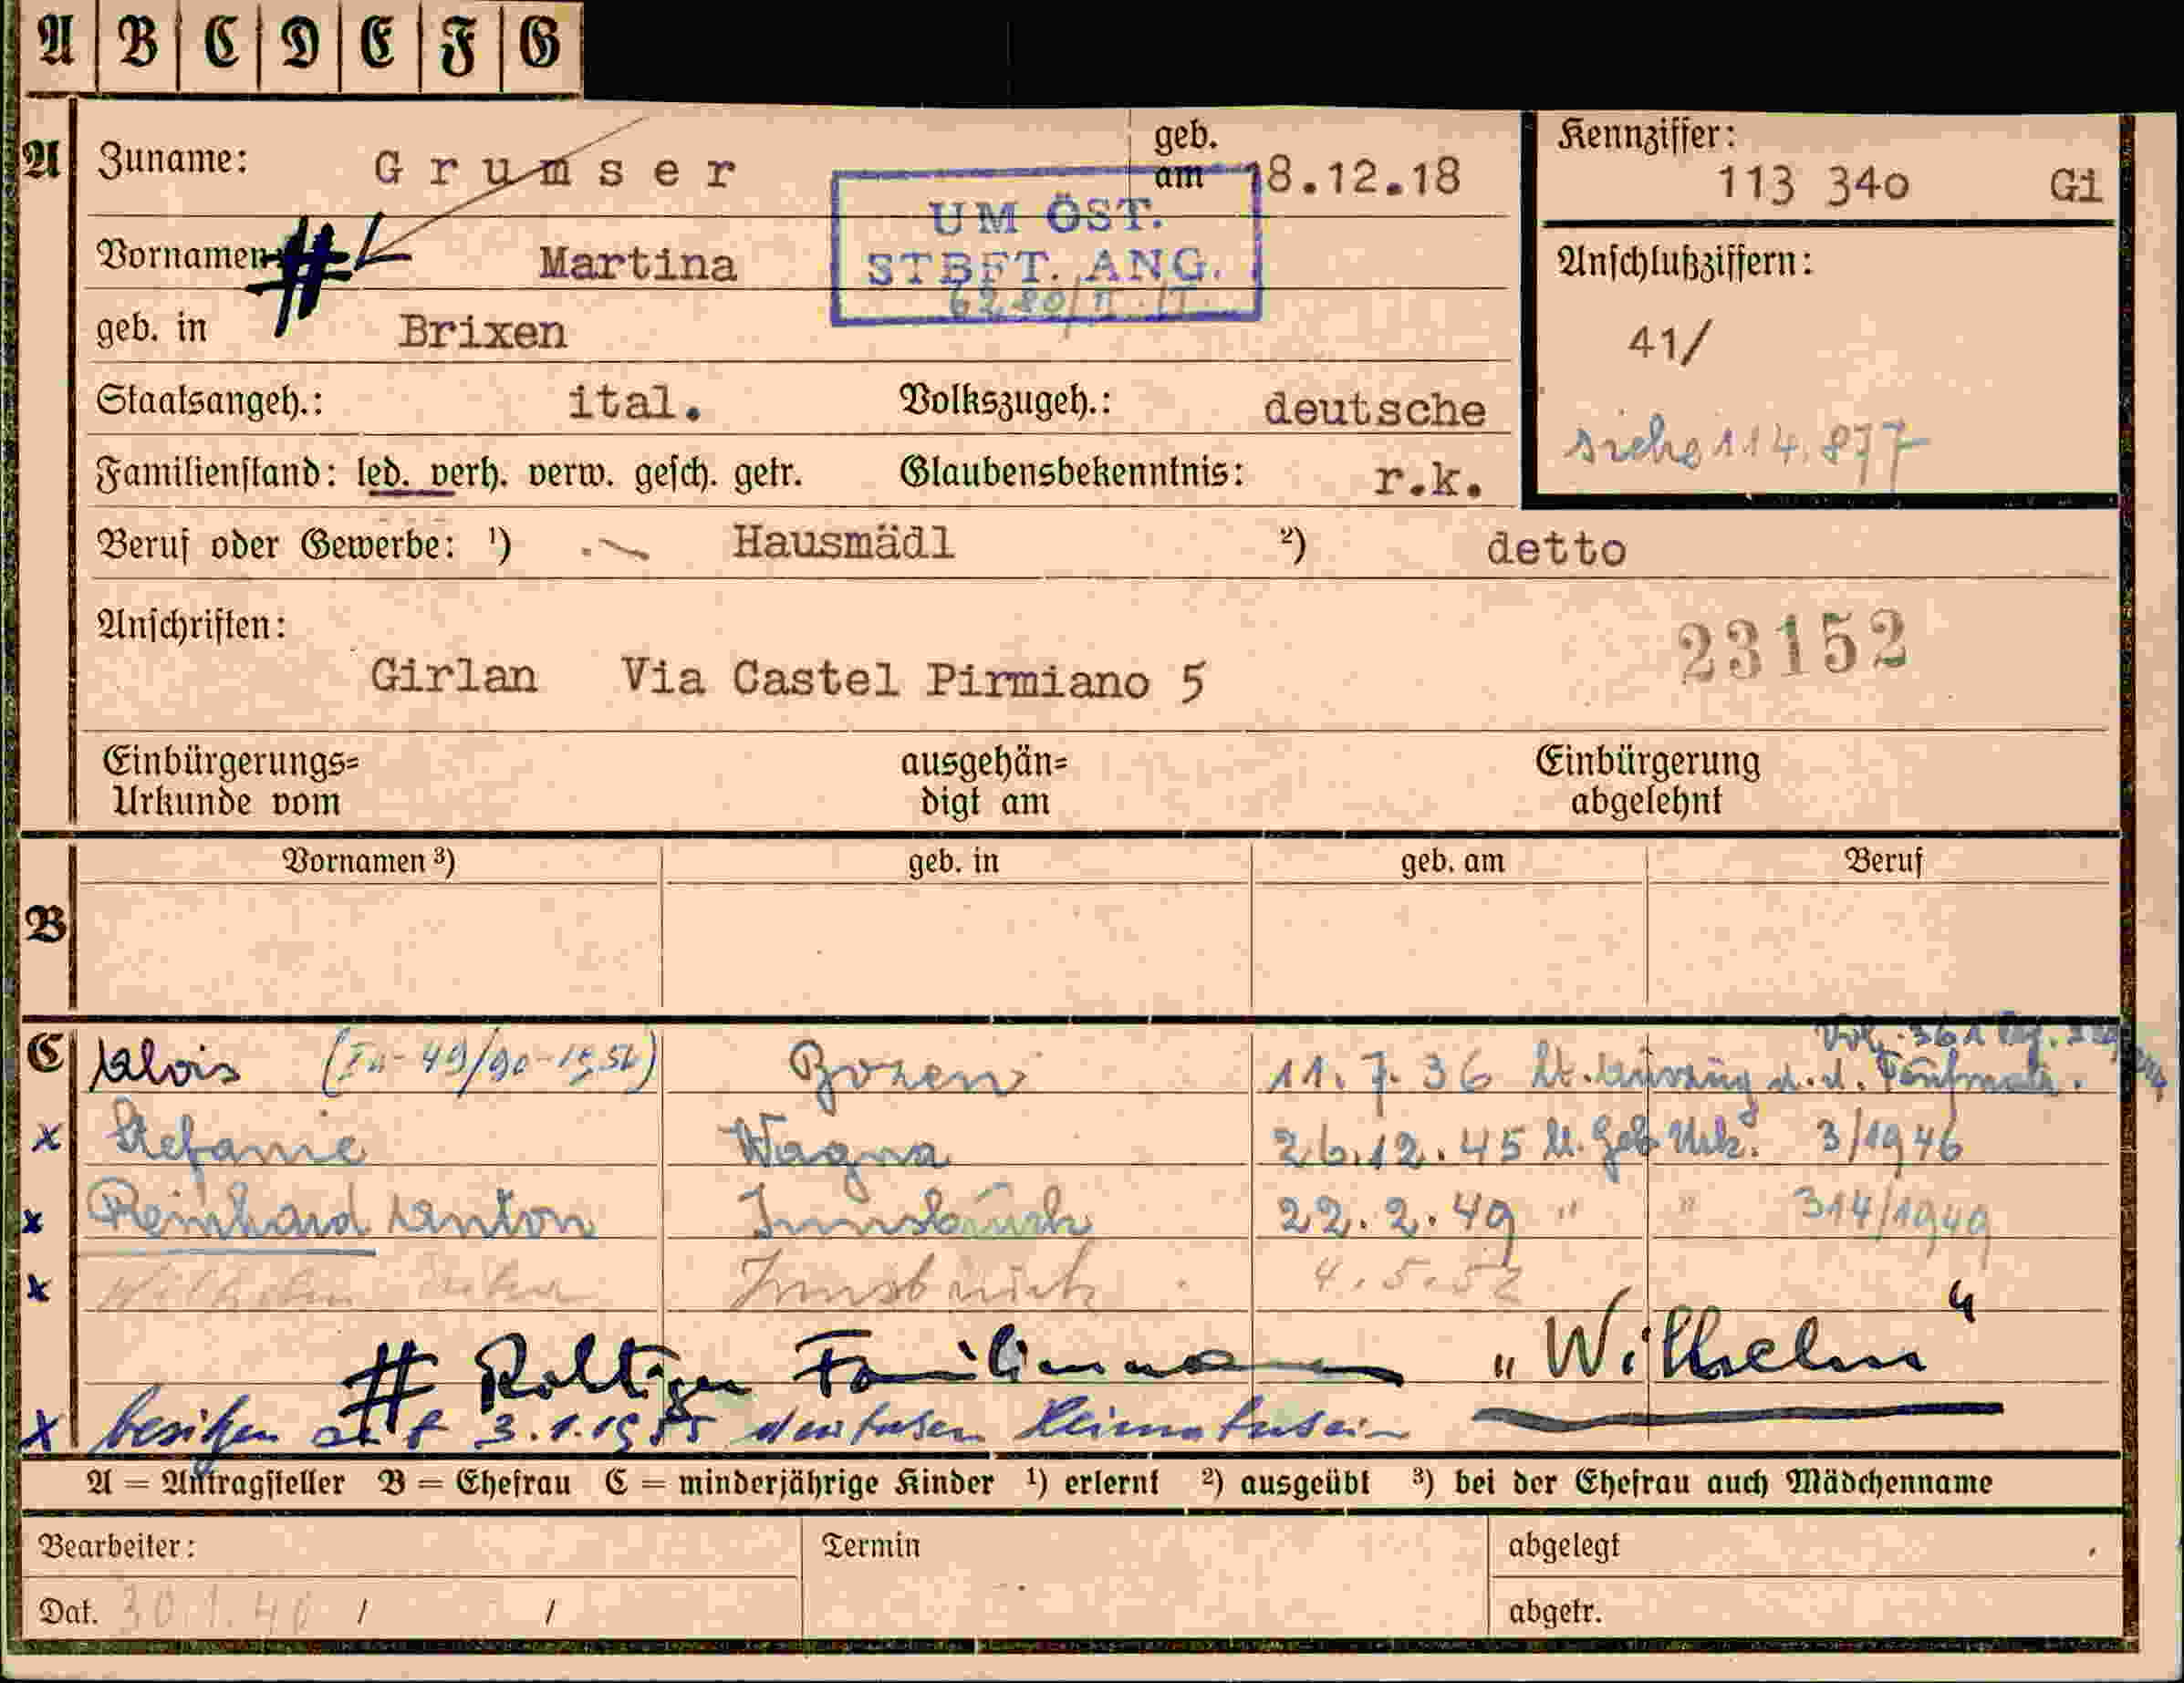 A B C D E F G
A Zuname: Grumser geb. am 18.12.18 Kennziffer: 113 34o Gi
UM ÖST. STBFT. ANG.
Vornamen # Martina Anschlußziffern:
geb. in Brixen 41/
Staatsangeh.: ital. Volkszugeh.: deutsche siehe 114.877
Familienstand: led. verh. verw. gesch. getr. Glaubensbekenntnis: r.k.
Beruf oder Gewerbe: ¹) Hausmädl ²) detto
Anschriften: 23152
Girlan Via Castel Pirmiano 5
Einbürgerungs= Urkunde vom ausgehän= digt am Einbürgerung abgelehnt
Vornamen ³) geb. in geb. am Beruf
B
C Alois Bozen 11.7.36 lt.
x Stefanie Wagna 26.12.45 lt. Geb Urk. 3/1946
x Reinhard Anton Innsbruck 22.2.49 " " 314/1949
x Wilhelm Innsbruck 4.5.52
# Richtiger Familienname „Wilhelm“
x besitzen seit 3.1.1955 deutschen Heimatschein
A = Antragsteller B = Ehefrau C = minderjährige Kinder ¹) erlernt ²) ausgeübt ³) bei der Ehefrau auch Mädchenname
Bearbeiter: Termin abgelegt
Dat. 30.1.40 / / abgetr.